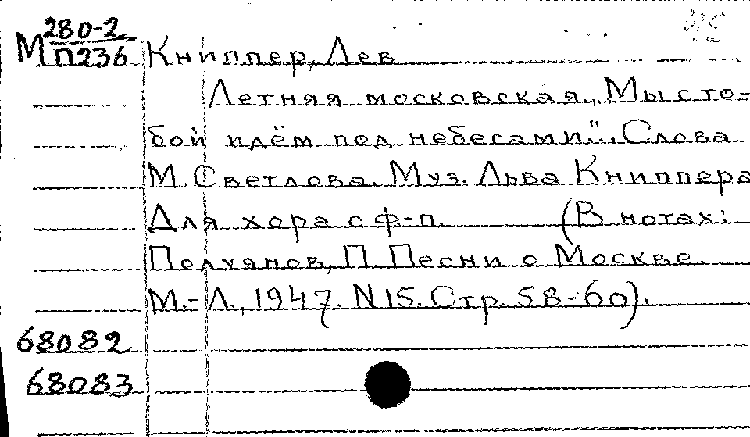 280-2
М П236 Книппер, Лев
Летняя московская. „Мы с то-
бой идём под небесами". Слова
М. Светлова. Муз. Льва Книппера
Для хора с ф-п. (В нотах:
Полуянов, П. Песни о Москве.
М.-Л., 1947. N15. Стр. 58-60).
68082
68083